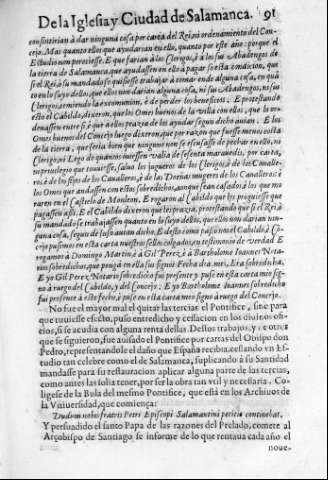 De la Iglesia y Ciudad de Salamanca. 91
consintirian à dar ninguna cosa por carta del Rei, ni ordenamiento del Con-
cejo. Mas quanto ellos que ayudarian en ello, quanto por este año: porque el
Estudio non pereciesse. E que farian à los Clerigos, è à los sus Abadengos de
la tierra de Salamanca, que ayudassen en ello à pagar so esta condicion, que
si el Rei, ò su mandado se quisiesse trabajar à tomar ende alguna cosa, en quã
to en lo suyo dello, que ellos non darian alguna cosa, ni sus Abadengos, ni sus
Clerigos, temiendo la excomunion, è de perder los beneficios. E protestando
esto el Cabildo, dixeron, que los Omes buenos de la villa con ellos, que lo or-
denassen entre si, è que à ellos prazia de los ayudar segun dicho auian. E los
Omes buenos del Concejo luego dixeron, que por razon que fuesse menos costa
de la tierra, que seria bien que ninguno non se escusasse de pechar en ello, ni
Clerigo, ni Lego de quantos huuessen valia de sesenta marauedis, por carta,
ni preuilegio que touiesse, saluo los jugueros de los Clerigos, è de los Caualle-
ros, è de los fijos de los Caualleros, è de las Dueñas mugeres de los Caualleros: è
los Omes que andassen en estos sobredichos, aunque sean casados, à los que mo
raren en el Castelo de Monleon. E rogaron al Cabildo que les proguiesse que
pagassen assi. E el Cabildo dixeron que les prazia, protestando que si el Rei, ò
su mandado se trabajassen quanto en lo suyo dello, que ellos non darian nin-
guna cosa, segun de suso auian dicho. E desto como passò nos el Cabildo, è Cõ-
cejo pusimos en esta carta nuestros sellos colgados, en testimonio de verdad. E
rogamos à Domingo Martinez, à Gil Perez, è à Bartholome Iuanes Nota-
rios sobredichos, que pongã en ella sus signos. Fecha dia, mes, Era sobredicha.
E yo Gil Perez, Notario sobredicho fui presente, y puse en esta carta mio sig-
no à ruego del Cabildo, y del Concejo. E yo Bartholome Iuannes sobredicho
fui presente à esto fecho, è puse en esta carta meo signo à ruego del Concejo.
No fue el mayor mal el quitar las tercias el Pontifice, sino para
que tuuiesse efecto, puso entredicho y cessacion en los diuinos ofi-
cios, si se acudia con alguna renta dellas. Destos trabajos, y otros
que se siguieron, fue auisado el Pontifice por cartas del Obispo don
Pedro, representandole el daño que España recibia, estando vn Es-
tudio tan celebre como el de Salamanca, suplicando à su Santidad
mandasse para su restauracion aplicar alguna parte de las tercias,
como antes las solia tener, por ser la obra tan vtil y necessaria. Co-
ligese de la Bula del mesmo Pontifice, que està en los Archiuos de
la Vniuersidad, que comiença:
Dudum nobis fratris Petri Episcopi Salamantini peticio continebat.
Y persuadido el santo Papa de las razones del Prelado, comete al
Arçobispo de Santiago se informe de lo que rentaua cada año el
noue-